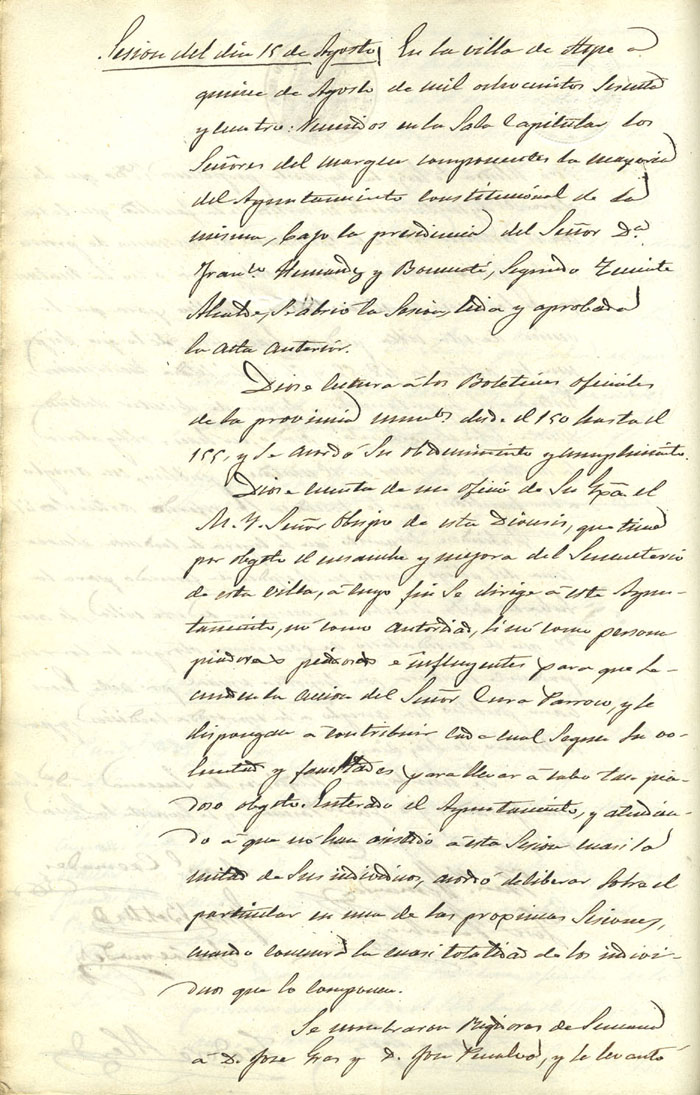 Sesion del dia 15 de Agosto En la villa de Aspe a
quince de Agosto de mil ochocientos sesenta
y cuatro: Reunidos en la Sala Capitular los
Señores del margen componentes la mayoria
del Ayuntamiento constitucional de la
misma, bajo la presidencia del Señor Dn.
Franco. Hernandz y Bonmatí, Segundo Teniente
Alcalde, Se abrio la Sesion, leida y aprobada
la acta anterior.
Diose lectura á los Boletines oficiales
de la provincia numos. desde el 150 hasta el
155, y se acordó su obedecimiento y cumplimiento.
Diose cuenta de un oficio de Su Exa. el
M. Y. Señor Obispo de esta Diocesis, que tiene
por obgeto el ensanche y mejora del Sementerio
de esta villa, á cuyo fin se dirige á este Ayun-
tamiento, nó como autoridad, sinó como personas
piadosas é influyentes para que se-
cunden la accion del Señor Cura Parroco, y se
dispongan á contribuir cada cual segun su vo-
luntad y facultades para llevar á cabo tan pia-
doso obgeto. Enterado el Ayuntamiento, y atendien-
do á que no han asistido á esta Sesion cuasi la
mitad de sus individuos, acordó deliberar sobre el
particular en una de las proximas Sesiones,
cuando concurra la cuasi totalidad de los indivi-
duos que lo componen.
Se nombraron Regidores de Semana
á D. Jose Gras y D. Jose Penalva, y se levantó